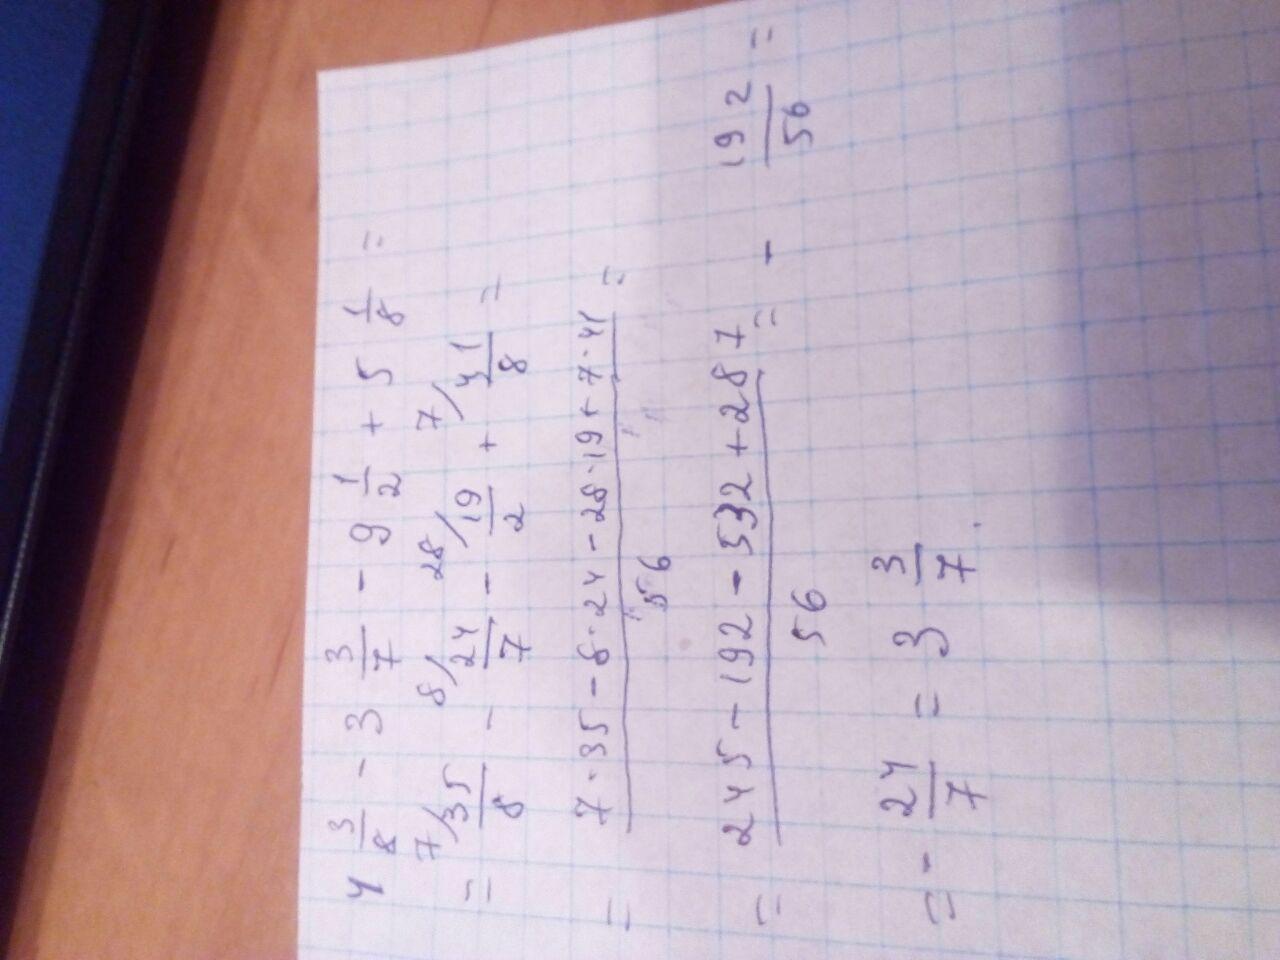 4 3/8 - 3 3/7 - 9 1/2 + 5 1/8 =
= 7/ 35/8 - 8/ 24/7 - 28/ 19/2 + 7/ 41/8 =
= 7·35 - 8·24 - 28·19 + 7·41 / 56 =
= 245 - 192 - 532 + 287 / 56 = - 192/56 =
= - 24/7 = 3 3/7 .